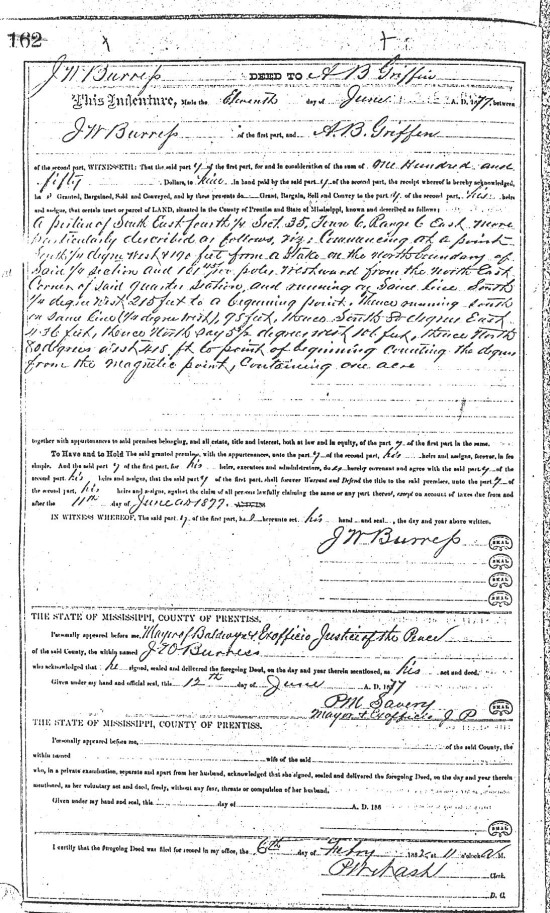 162
J W Burress DEED TO A B Griffin
This Indenture, Made the Eleventh day of June A. D. 1877, between
J W Burress of the first part, and A. B. Griffin
of the second part, WITNESSETH: That the said part y of the first part, for and in consideration of the sum of One Hundred and
fifty Dollars, to him in hand paid by the said part y of the second part, the receipt whereof is hereby acknowledged,
ha s Granted, Bargained, Sold and Conveyed, and by these presents do Grant, Bargain, Sell and Convey to the part y of the second part, his heirs
and assigns, that certain tract or parcel of LAND, situated in the County of Prentiss and State of Mississippi, known and described as follows:
A portion of South East fourth 1/4 Sect. 35, Town 6, Range 6 East, more
particularly described as follows, viz: Commencing at a point
South 1/2 degree West 490 feet from a Stake on the North boundary of
Said 1/4 section and poles Westward from the North East
Corner of said quarter Section, and running on Same line South
1/2 degree West 215 feet to a beginning point, thence running South
on same line (1/2 degree West), 95 feet, thence South 80 degrees East
436 feet, thence North 5 1/2 degrees West 106 feet, thence North
80 degrees West 415 ft to point of beginning counting the degrees
from the Magnetic point, Containing one acre
together with appurtenances to said premises belonging, and all estate, title and interest, both at law and in equity, of the part y of the first part in the same.
To Have and to Hold The said granted premises, with the appurtenances, unto the part y of the second part, his heirs and assigns, forever, in fee
simple. And the said part y of the first part, for his heirs, executors and administrators, do hereby covenant and agree with the said part y of the
second part his heirs and assigns, that the said part y of the first part, shall forever Warrant and Defend the title to the said premises, unto the part y of
the second part, his heirs and assigns, against the claim of all persons lawfully claiming the same or any part thereof, except on account of taxes due from and
after the 11th day of June AD 1877.
IN WITNESS WHEREOF, The said part y of the first part, ha s hereunto set his hand and seal, the day and year above written.
J W Burress SEAL
SEAL
SEAL
SEAL
THE STATE OF MISSISSIPPI, COUNTY OF PRENTISS.
Personally appeared before me, Mayor of Baldwyn & Exofficio Justice of the Peace
of the said County, the within named J W Burress
who acknowledged that he signed, sealed and delivered the foregoing Deed, on the day and year therein mentioned, as his act and deed.
Given under my hand and official seal, this 12th day of June A. D. 1877
P M Savery SEAL
Mayor & Exofficio J P
THE STATE OF MISSISSIPPI, COUNTY OF PRENTISS.
Personally appeared before me, of the said County, the
within named wife of the said
who, in a private examination, separate and apart from her husband, acknowledged that she signed, sealed and delivered the foregoing Deed, on the day and year therein
mentioned, as her voluntary act and deed, freely, without any fear, threats or compulsion of her husband.
Given under my hand and seal, this day of A. D. 186
SEAL
I certify that the foregoing Deed was filed for record in my office, the 6th day of Feby 1882, at 11 o'clock A. M.
Nash Clerk.
D. C.